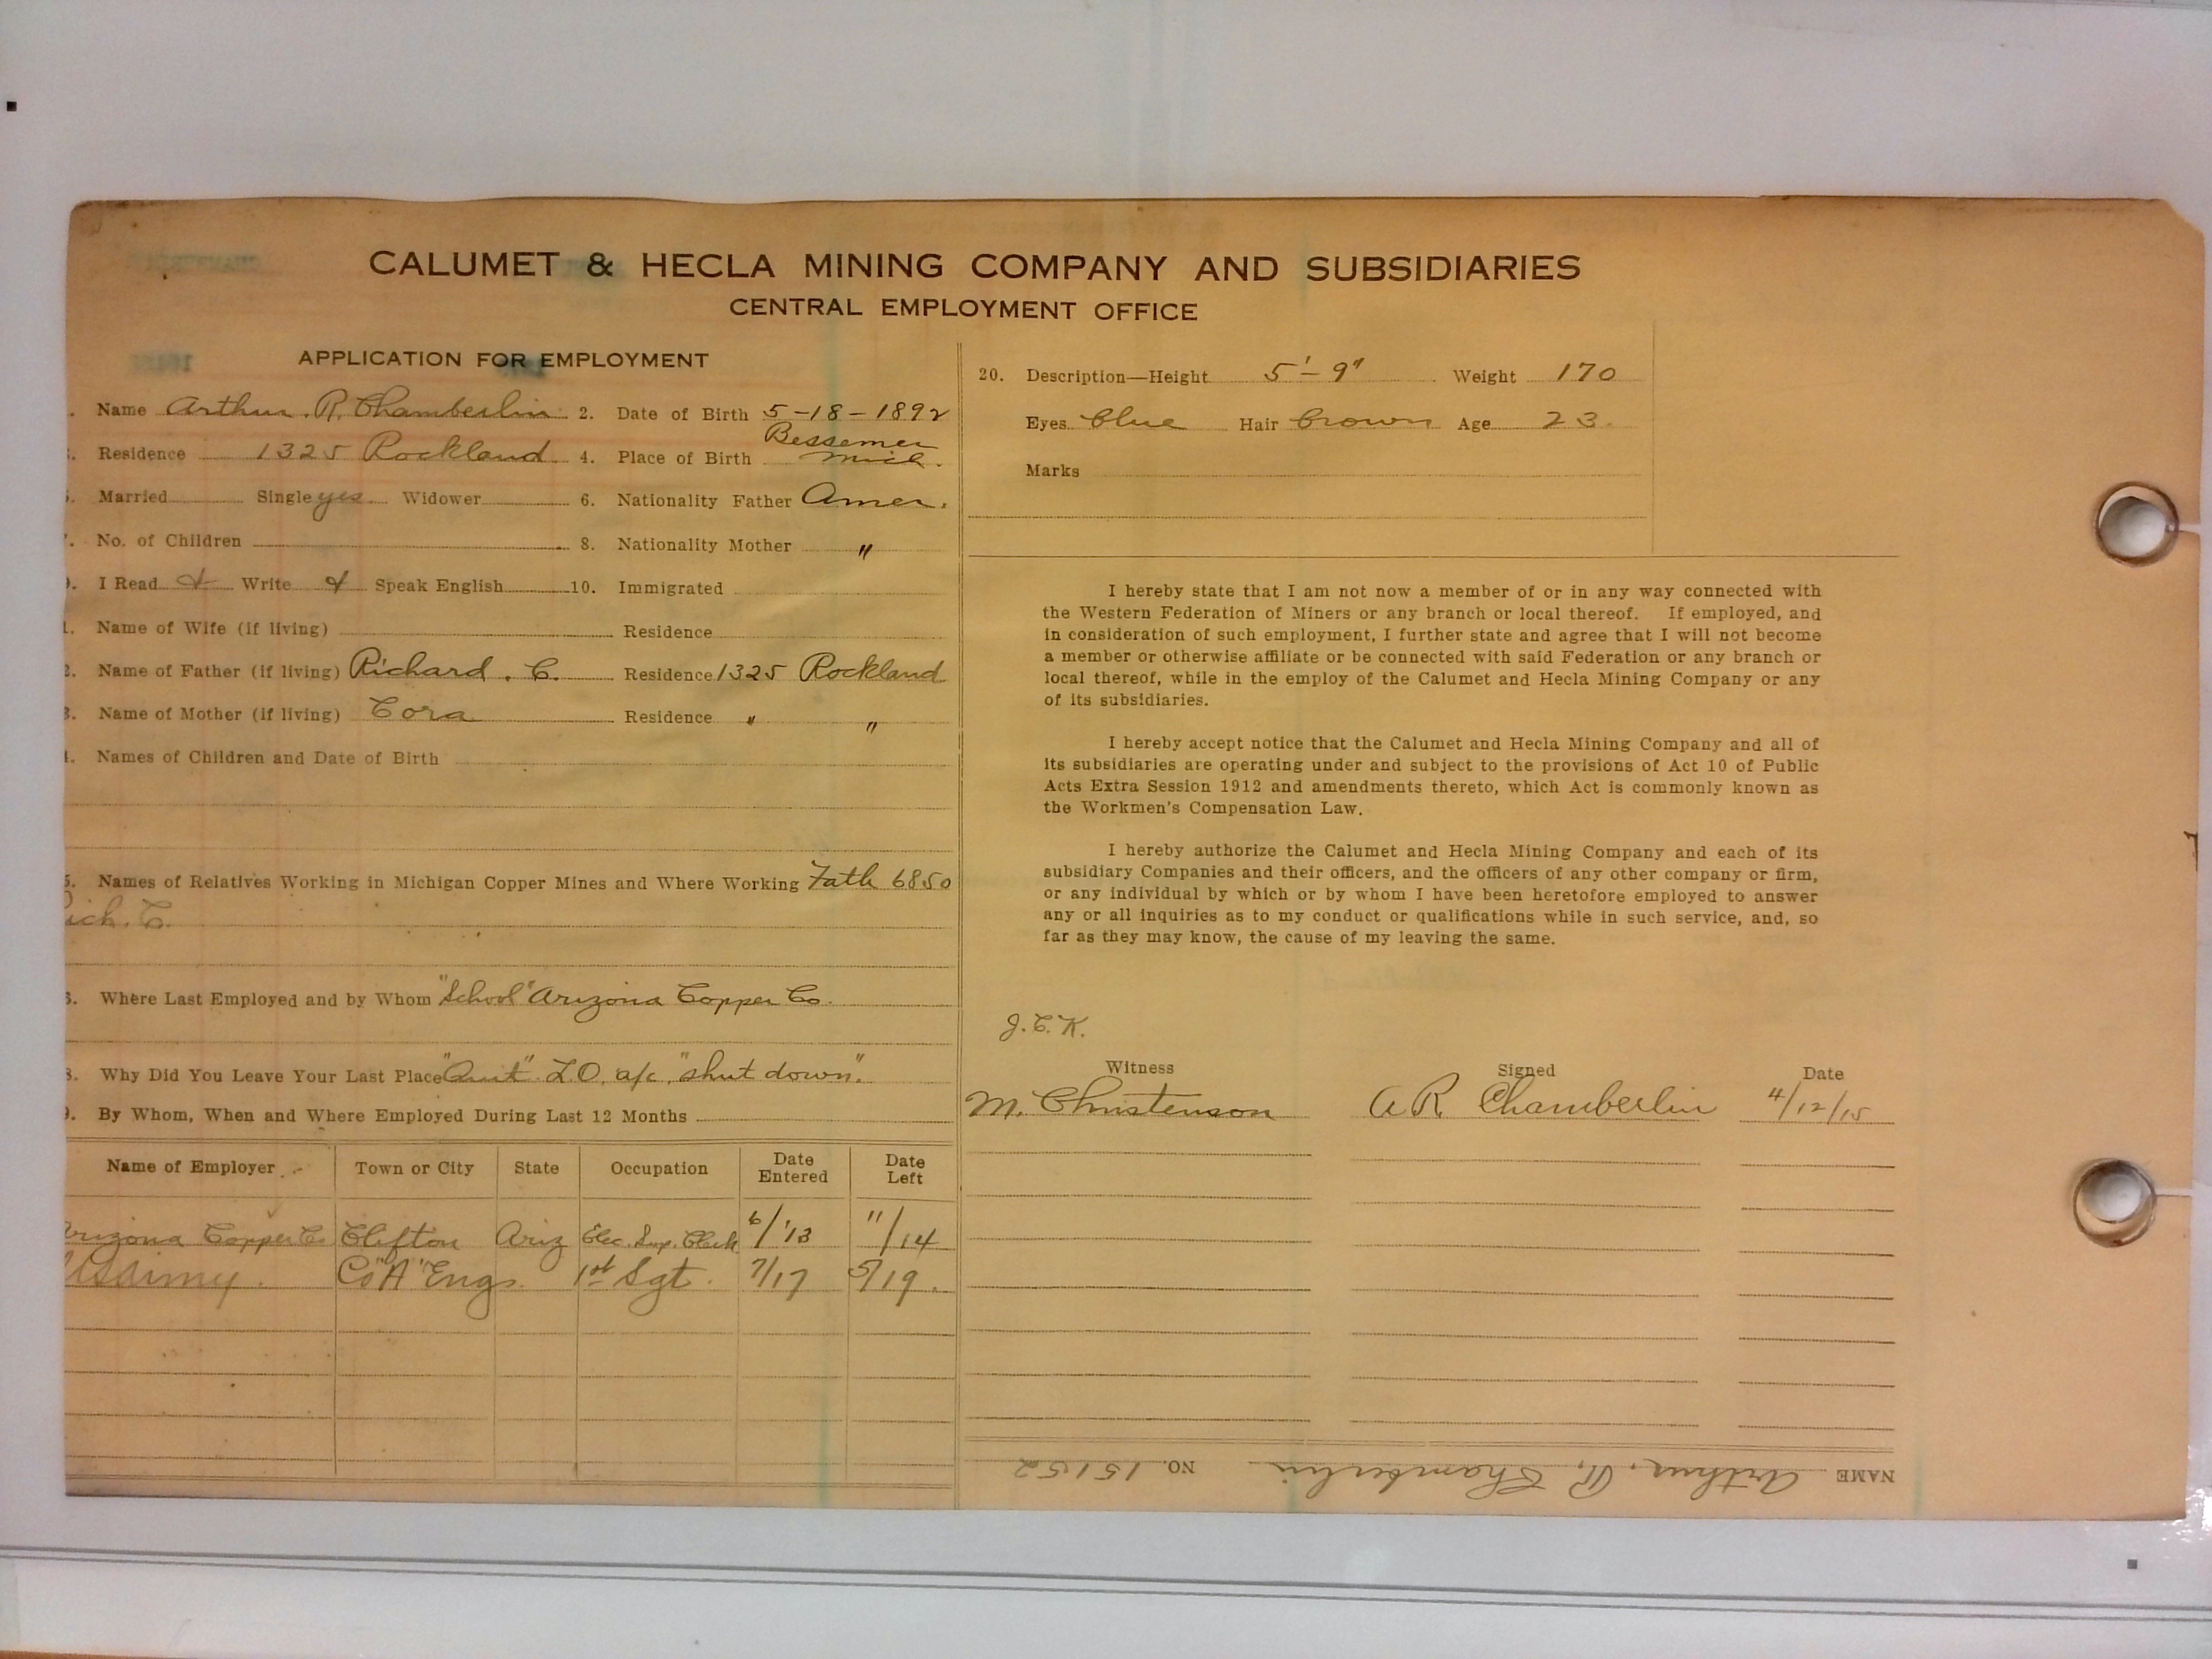 CALUMET & HECLA MINING COMPANY AND SUBSIDIARIES
CENTRAL EMPLOYMENT OFFICE
APPLICATION FOR EMPLOYMENT
. Name Arthur. R. Chamberlin 2. Date of Birth 5-18-1892
. Residence 1325 Rockland 4. Place of Birth Bessemer Mich.
. Married Single yes Widower 6. Nationality Father Amer.
. No. of Children 8. Nationality Mother "
. I Read Write Speak English 10. Immigrated
. Name of Wife (if living) Residence
2. Name of Father (if living) Richard. C. Residence 1325 Rockland
3. Name of Mother (if living) Cora Residence " "
. Names of Children and Date of Birth
. Names of Relatives Working in Michigan Copper Mines and Where Working Fath 6850
ich. C.
. Where Last Employed and by Whom "School" Arizona Copper Co.
. Why Did You Leave Your Last Place "Quit" L.O. a/c "shut down".
. By Whom, When and Where Employed During Last 12 Months
Name of Employer Town or City State Occupation Date Entered Date Left
rizona Copper Co Clifton Ariz Elec. Sup. Clerk 6/'13 11/14
US Army. Co "A" Engs. 1st Sgt. 7/17 5/19.
20. Description—Height 5'-9" Weight 170
Eyes blue Hair brown Age 23.
Marks
I hereby state that I am not now a member of or in any way connected with
the Western Federation of Miners or any branch or local thereof. If employed, and
in consideration of such employment, I further state and agree that I will not become
a member or otherwise affiliate or be connected with said Federation or any branch or
local thereof, while in the employ of the Calumet and Hecla Mining Company or any
of its subsidiaries.
I hereby accept notice that the Calumet and Hecla Mining Company and all of
its subsidiaries are operating under and subject to the provisions of Act 10 of Public
Acts Extra Session 1912 and amendments thereto, which Act is commonly known as
the Workmen's Compensation Law.
I hereby authorize the Calumet and Hecla Mining Company and each of its
subsidiary Companies and their officers, and the officers of any other company or firm,
or any individual by which or by whom I have been heretofore employed to answer
any or all inquiries as to my conduct or qualifications while in such service, and, so
far as they may know, the cause of my leaving the same.
J.C.K.
Witness Signed Date
M. Christenson A R Chamberlin 4/12/15
NAME Arthur, R, Chamberlin NO. 15152